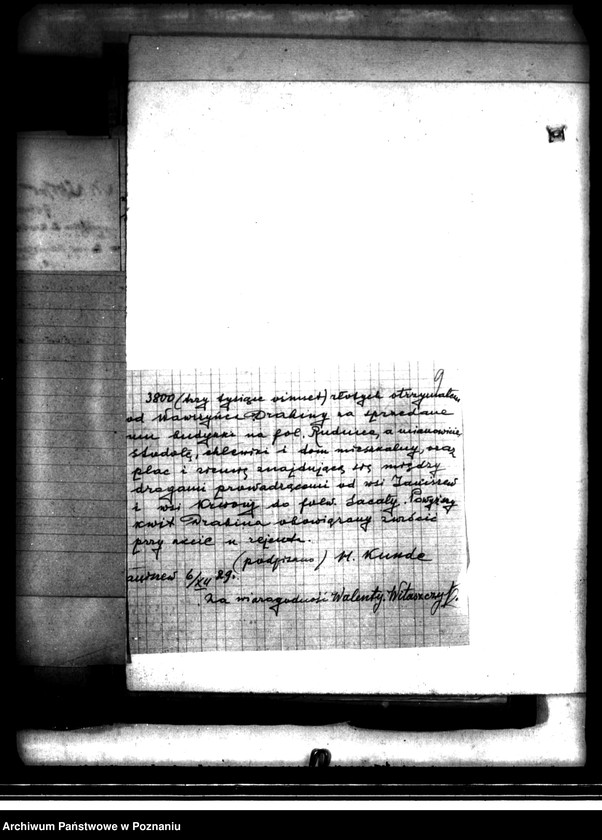 9
3800 (trzy tysiące osiemset) złotych otrzymałem
od Wawrzyńca Drabiny za sprzedane
mu budynki na fol. Rudunce, a mianowicie
stodołę, chlewiki i dom mieszkalny, oraz
plac i ziemię znajdującą się między
drogami prowadzącemi od wsi Janiszew
i wsi Krwony do folw. Sacały. Powyższy
kwit Drabina obowiązany zwrócić
przy akcie u rejenta.
(podpisano) H. Kunde
6/XII 29.
Za wiarogodność Walenty Witaszczyk.
Archiwum Państwowe w Poznaniu